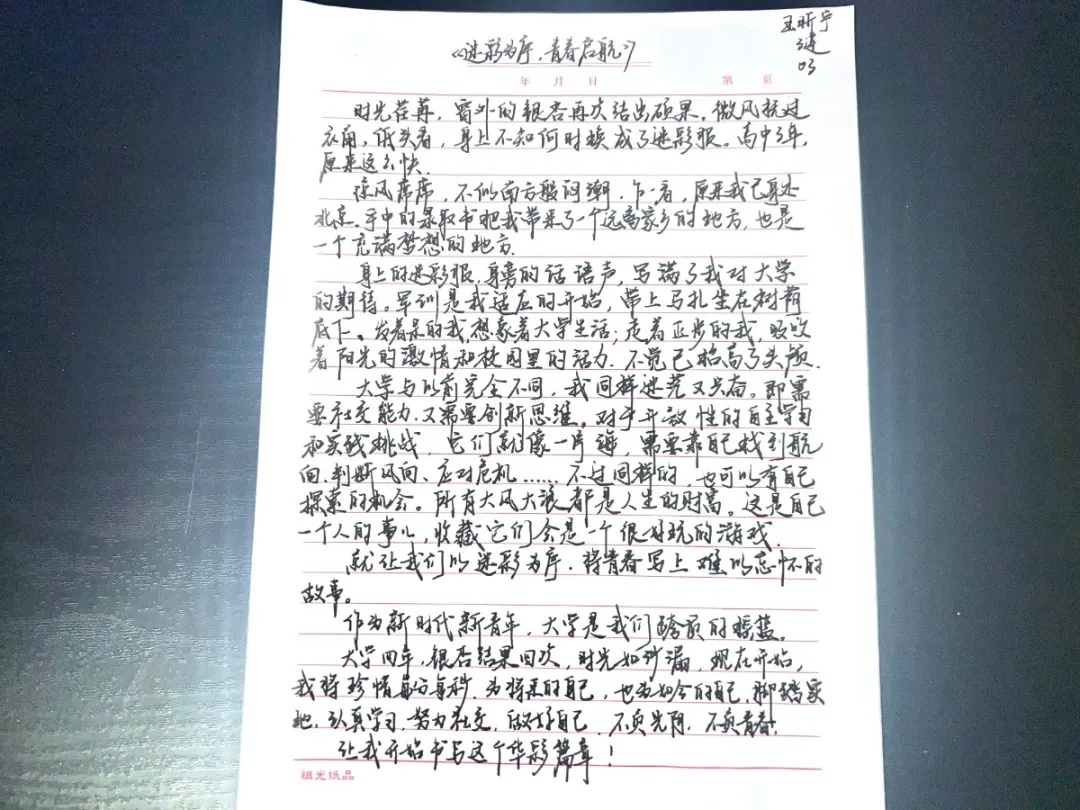 王昕宁
3连
03
《迷彩为序，青春启航》
年 月 日 第 页
时光荏苒，窗外的银杏再次结出硕果。微风抚过
衣角，低头看，身上不知何时换成了迷彩服。高中3年，
原来这么快.
凉风席席，不似南方般闷潮，乍一看，原来我已身处
北京。手中的录取书把我带来了一个远离家乡的地方，也是
一个充满梦想的地方.
身上的迷彩服，身旁的话语声，写满了我对大学
的期待。军训是我适应的开始，带上马扎坐在树荫
底下、发着呆的我，想象着大学生活；走着正步的我，吸收
着阳光的激情和校园里的活力.不觉已抬高了头颅.
大学与以前完全不同，我同样迷茫又兴奋。即需
要社交能力.又需要创新思维。对于开放性的自主学习
和实践挑战，它们就像一片海，需要靠自己找到航
向、判断风向、应对危机……不过同样的，也可以有自己
探索的机会。所有大风大浪都是人生的财富。这是自己
一个人的事儿，收藏它们会是一个很好玩的游戏.
就让我们以迷彩为序.将青春写上难以忘怀的
故事。
作为新时代新青年，大学是我们的摇篮。
大学四年，银杏结果四次，时光如沙漏，现在开始，
我将珍惜每分每秒.为将来的自己，也为如今的自己，脚踏实
地.认真学习.努力社交，做好自己.不负光阴.不负青春！
让我开始书写这个华彩篇章！
祖光纸品